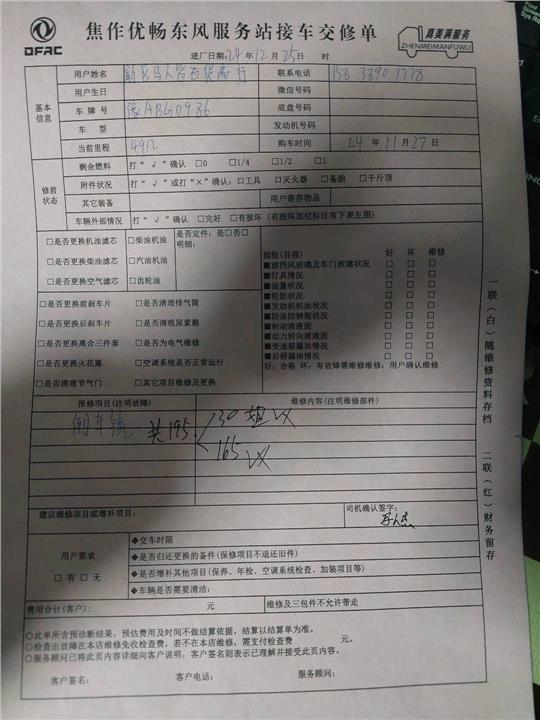 DFAC
焦作优畅东风服务站接车交修单
真美满服务
ZHENMEIMANFUWU
进厂日期:24年12月25日 时
基本信息
用户姓名 联系电话
用户生日 微信号码
车牌号 豫ABG0986 底盘号码
车型 发动机号码
当前里程 4912 购车时间 24年11月27日
修前状态
剩余燃料 打“√”确认 □0 □1/4 □1/2 □1
附件状况 打“√”或打“×”确认:□工具 □灭火器 □备胎 □千斤顶
其它装备 用户寄存物品
车辆外部情况 打“√”确认 □完好 □有损坏(有损坏部位标注有下表左图)
□是否更换机油滤芯 □柴油机油 是否定件:是□否□
明细:
□是否更换柴油滤芯 □汽油机油
□是否更换空气滤芯 □齿轮油
□是否更换前刹车片 □是否清理排气筒
□是否更换后刹车片 □是否清理尿素箱
□是否更换离合三件套 □是否为电气维修
□是否更换火花塞 □空调系统是否正常运行
□是否清理节气门 □其它项目维修及更换
预检(目视) 好 坏 维修
■前挡风玻璃及车门玻璃状况 □ □ □
■灯具情况 □ □ □
■油量状况 □ □ □
■轮胎状况 □ □ □
■发动机机油状况 □ □ □
■防冻防锈瓶状况 □ □ □
■制动液液面 □ □ □
■动力转向液液面 □ □ □
■变速箱漏油情况 □ □ □
■后桥漏油情况 □ □ □
好:合格 坏:有故障需维修维修:用户确认维修
报修项目(注明故障) 维修内容(注明维修部件)
倒车镜 共195
30
165
建议维修项目或增补项目: 司机确认签字:
用户要求
□有□无
◆交车时限
◆是否归还更换的备件(保修项目不退还旧件)
◆是否增补其他项目(保养、年检、空调系统检查、加装项目等)
◆车辆是否需要清洁:
费用合计(客户): 元 维修及三包件不允许带走
○此单所含预诊断结果,预估费用及时间不做结算依据,结算以结算单为准。
○检查出故障在本店维修免收检查费,若不在本店维修,需支付检查费 元。
○服务顾问已将此页内容详细向客户说明,客户签名则表示已理解并接受此页内容。
客户签名: 客户电话: 服务顾问:
一联(白)随维修资料存档
二联(红)财务留存